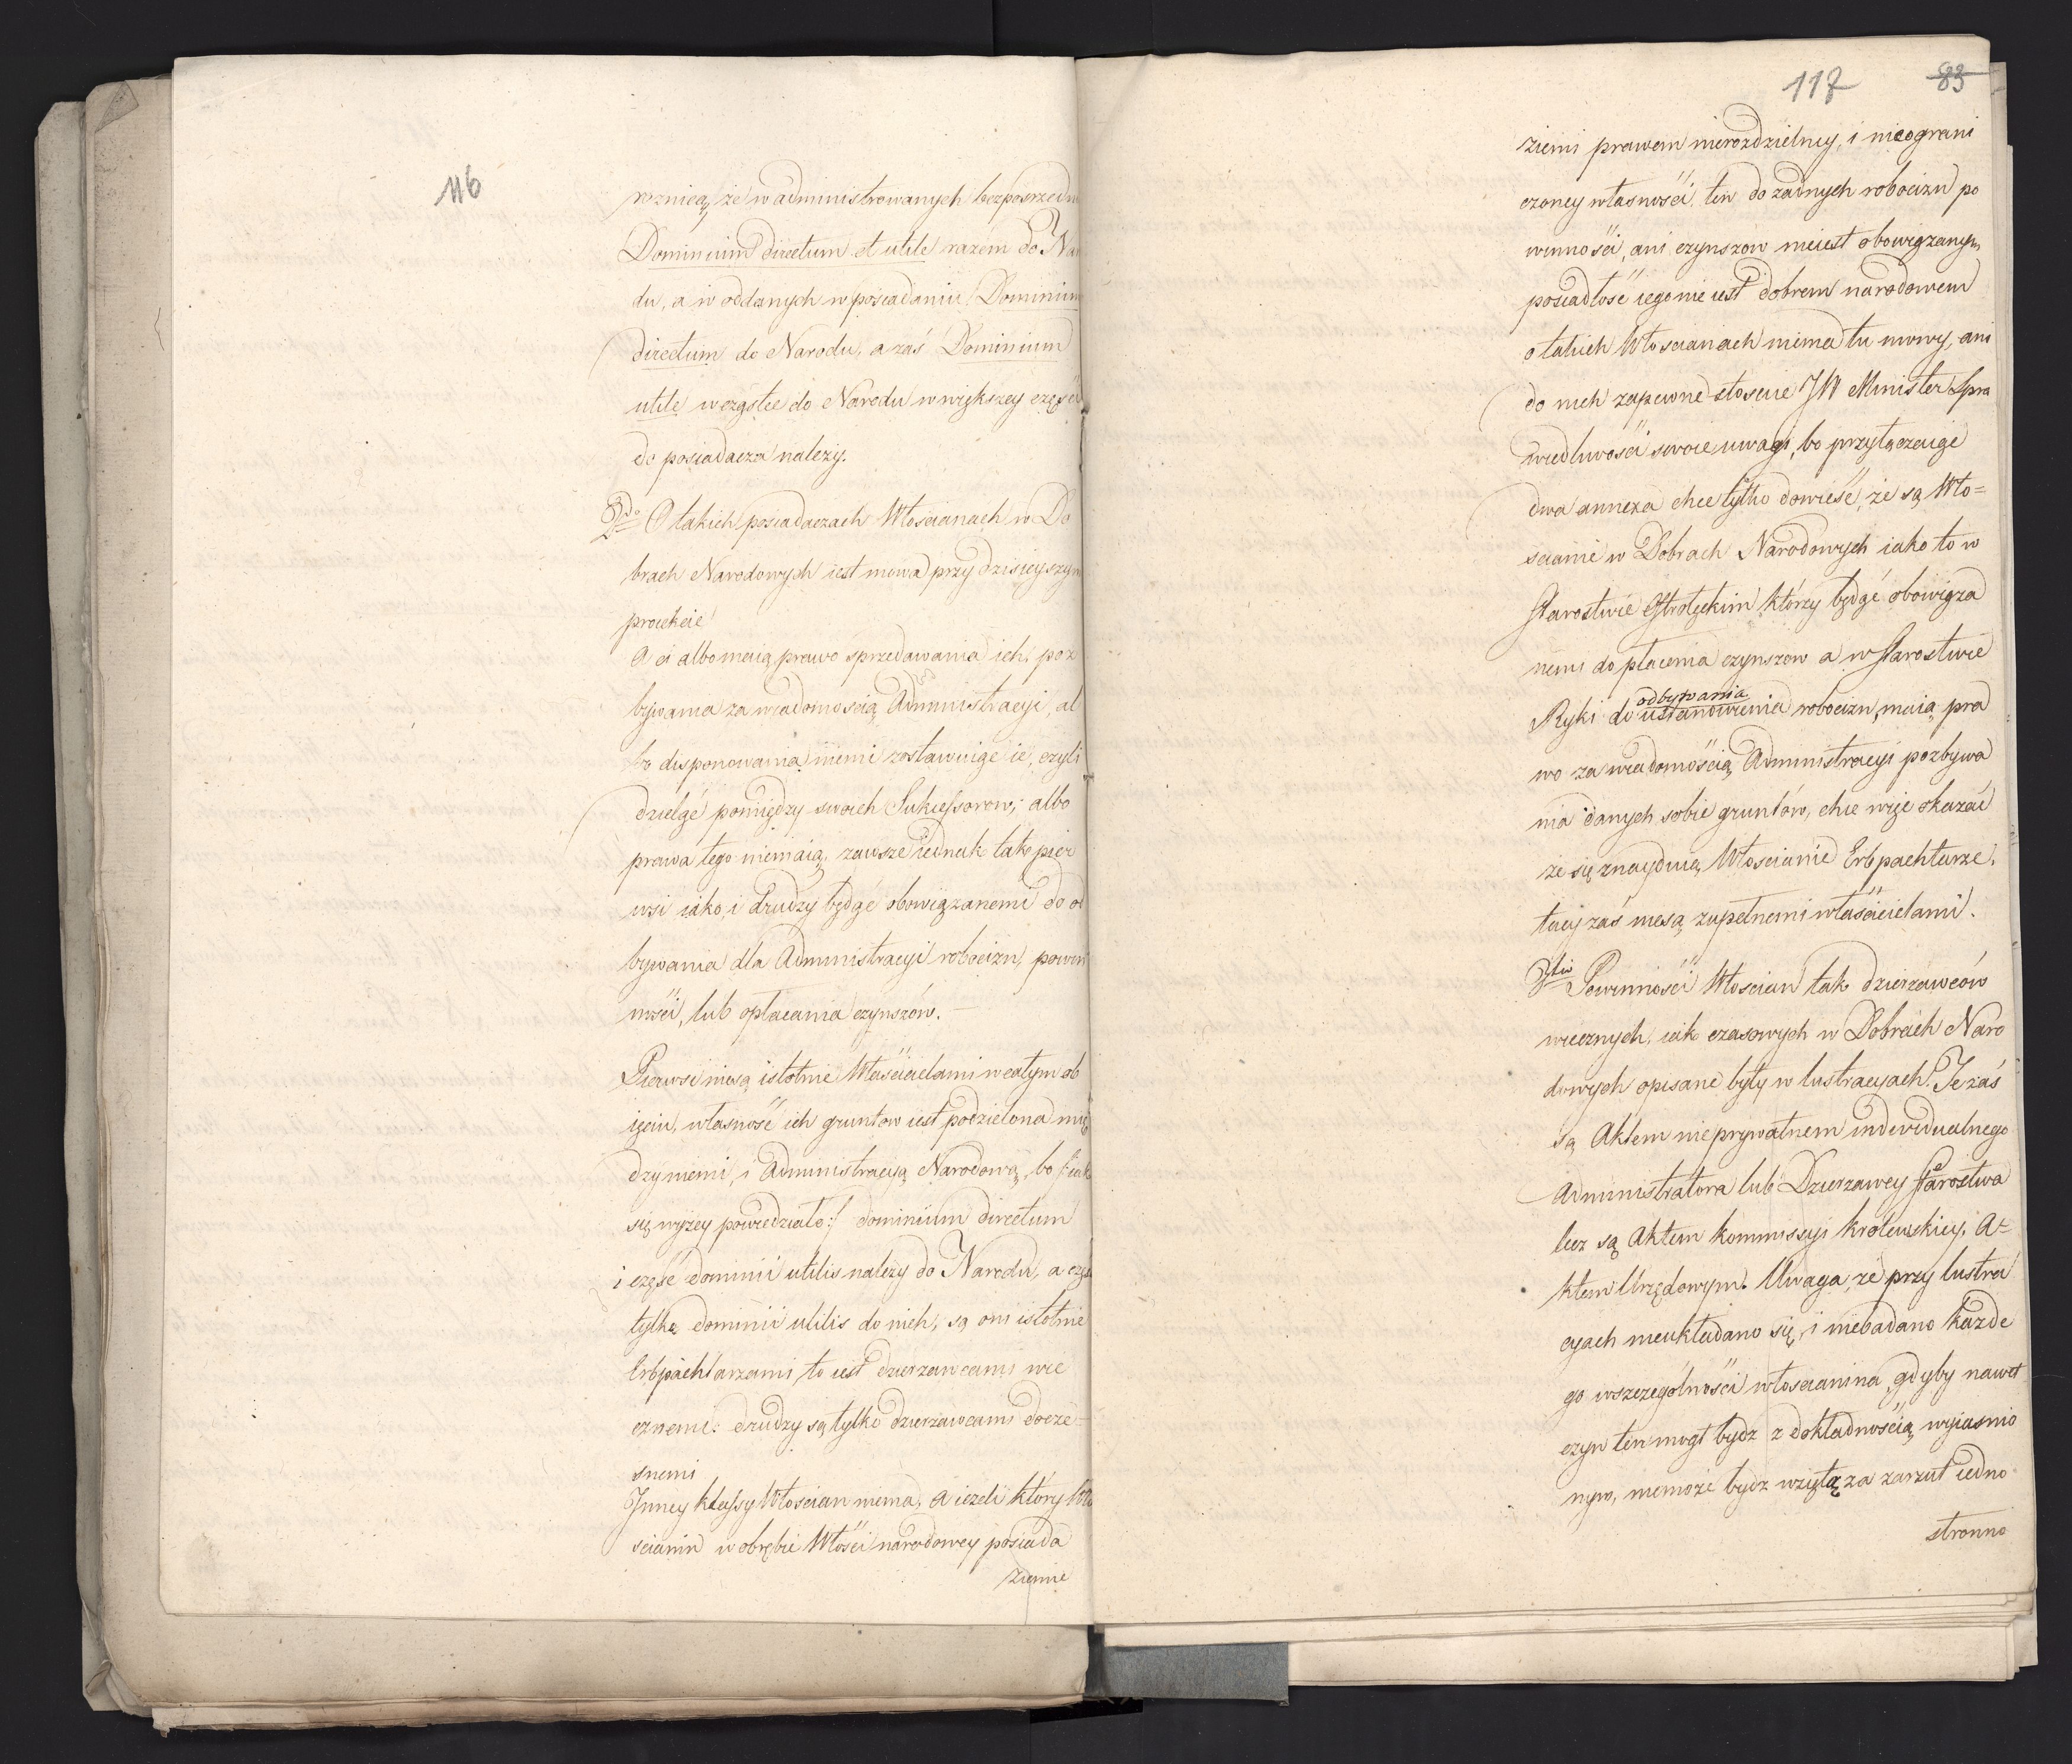 116
roznicą, że w administrowanych bezpośredn
Dominium directum et utile razem do Nar
du, a w oddanych w posiadaniu Dominium
directum do Narodu, a zaś Dominium
utile w cząstce do Narodu w większey częśc
do posiadacza należy.
2do O takich posiadaczach Włoscianach w Do
brach Narodowych iest mowa przy dzisieyszym
proiekcie
A ci albo maią prawo sprzedawania ich, poz
bywania za wiadomoscią Administracyi, al
bo disponowania niemi zostawuiąc ie, czyli
dzieląc pomiędzy swoich Sukcessorow; albo
prawa tego niemaią, zawsze iednak tak pier
wsi iako i drudzy będąc obowiązanemi do od
bywania dla Administracyi robocizn, powin
ności, lub opłacania czynszów.
Pierwsi niesą istotnie Właścicielami w całym ob
ięciu, własność ich gruntow iest podzielona mię
dzy niemi, i Administracyą Narodową, bo /: iak
się wyżey powiedziało :/ dominium directum
i część dominii utilis należy do Narodu, a częś
tylko dominii utilis do nich, są oni istotnie
Erbpachtarzami, to iest dzierzawcami wie
cznemi: drudzy są tylko dzierzawcami docze-
snemi
Inney klassy Włoscian niema, a iezeli który Wło
scianin w obrębie Włości narodowey posiada
ziemie
117 83
ziemi prawem nierozdzielney, i nieograni
czoney własności, ten do żadnych robocizn po
winności, ani czynszow nieiest obowiązanym
posiadłość iego nie iest dobrem narodowem
o takich Włoscianach niema tu mowy, ani
do nich zapewne stosuie JW Minister Spra
wiedliwości swoie uwagi, bo przyłączaiąc
dwa annexa chce tylko dowieść, że są Wło=
scianie w Dobrach Narodowych iako to w
Starostwie Ostrołęckim którzy będąc obowiąza
nemi do płacenia czynszow a w Starostwie
odbywania
Ryki do ustanowienia robocizn, maią pra
wo za wiadomością Administracyi pozbywa
nia danych sobie gruntów, chce więc okazać
że się znayduią Włoscianie Erbpachtarze,
tacy zaś niesą zupełnemi właścicielami.
3tio Powinności Włoscian tak dzierzawców
wiecznych, iak czasowych w Dobrach Naro
dowych opisane były w lustracyach. Te zaś
są Aktem nieprywatnem individualnego
Administratora lub Dzierzawcy Starostwa
lecz są Aktem Kommissyi Krolewskiey. A=
ktem Urzędowym. Uwaga, że przy lustra
cyach nieukładano się, i niebadano każde
go wszczególności włoscianina, gdyby nawet
czyn ten mogł bydz z dokładnością wyiasnio
nym, niemoże bydz wziętą za zarzut iedno
stronno